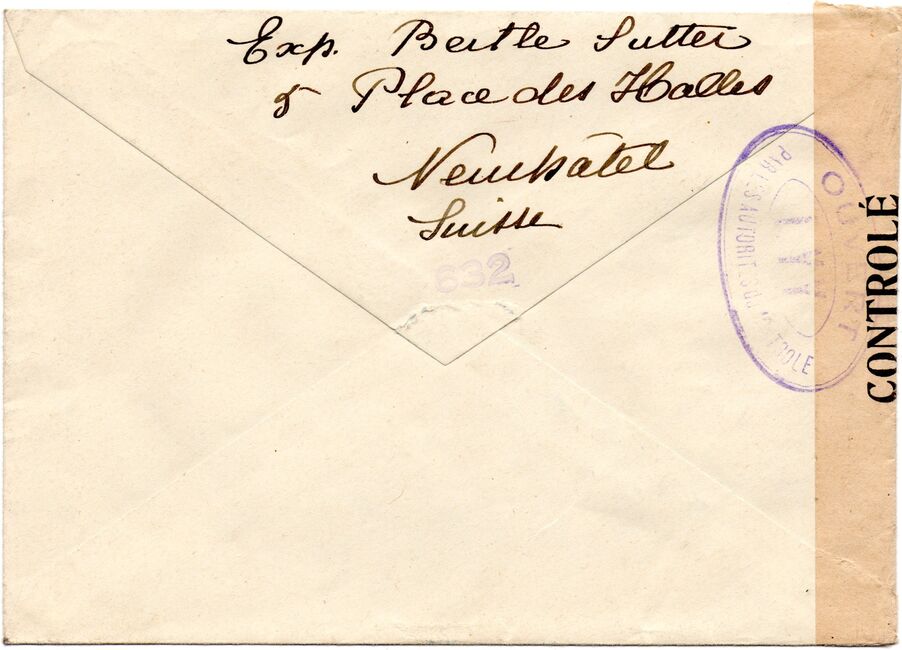 Exp. Bertle Sutter
Place des Halles
Neuchâtel
Suisse
632
OUVERT
PAR LES AUTORITÉS DE CONTROLE
CONTROLÉ